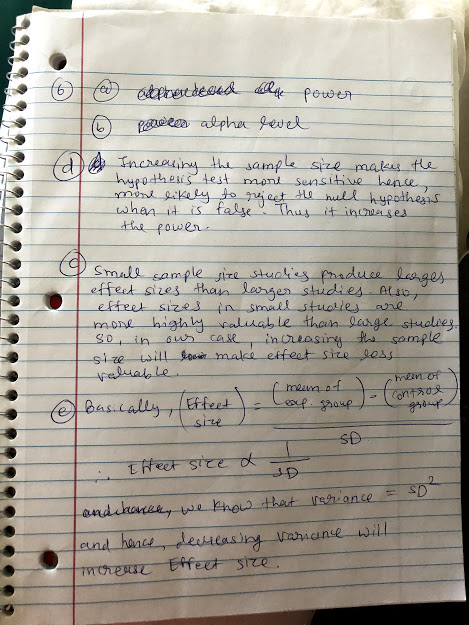 6 a power
b alpha level
d Increasing the sample size makes the
hypothesis test more sensitive hence,
more likely to reject the null hypothesis
when it is false. Thus it increases
the power.
c Small sample size studies produce larges
effect sizes than larger studies Also,
effect sizes in small studies are
more highly valuable than large studies.
So, in our case, increasing the sample
size will make effect size less
valuable.
e Basically, (Effect size) = (mean of exp. group) - (mean of control group)
SD
∴ Effect size ∝ 1
SD
we know that variance = SD²
and hence, decreasing variance will
increase Effect size.